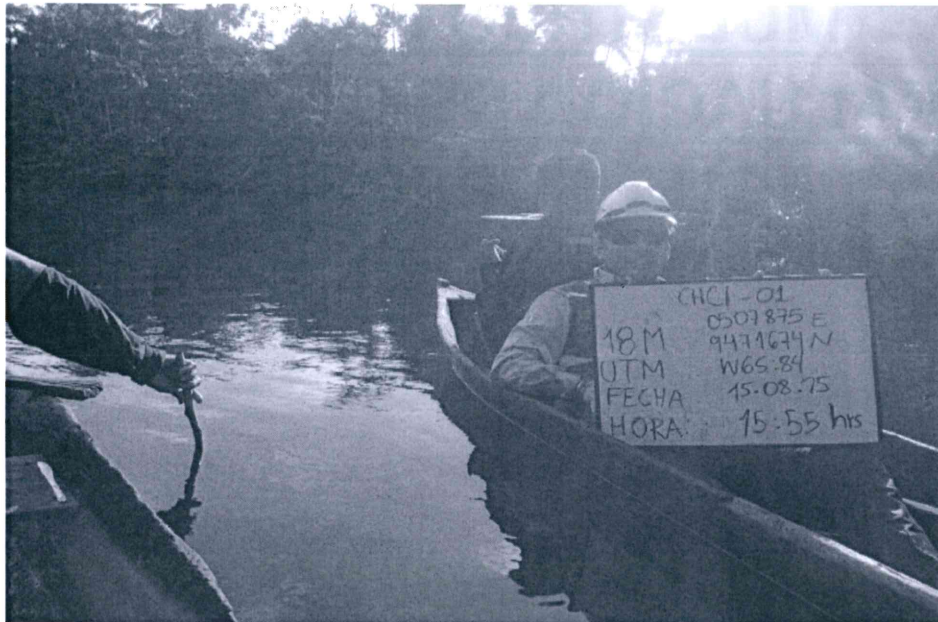 CHCI-01
0507875 E
18M 9471674 N
UTM WGS-84
FECHA 15-08-15
HORA: 15:55 hrs